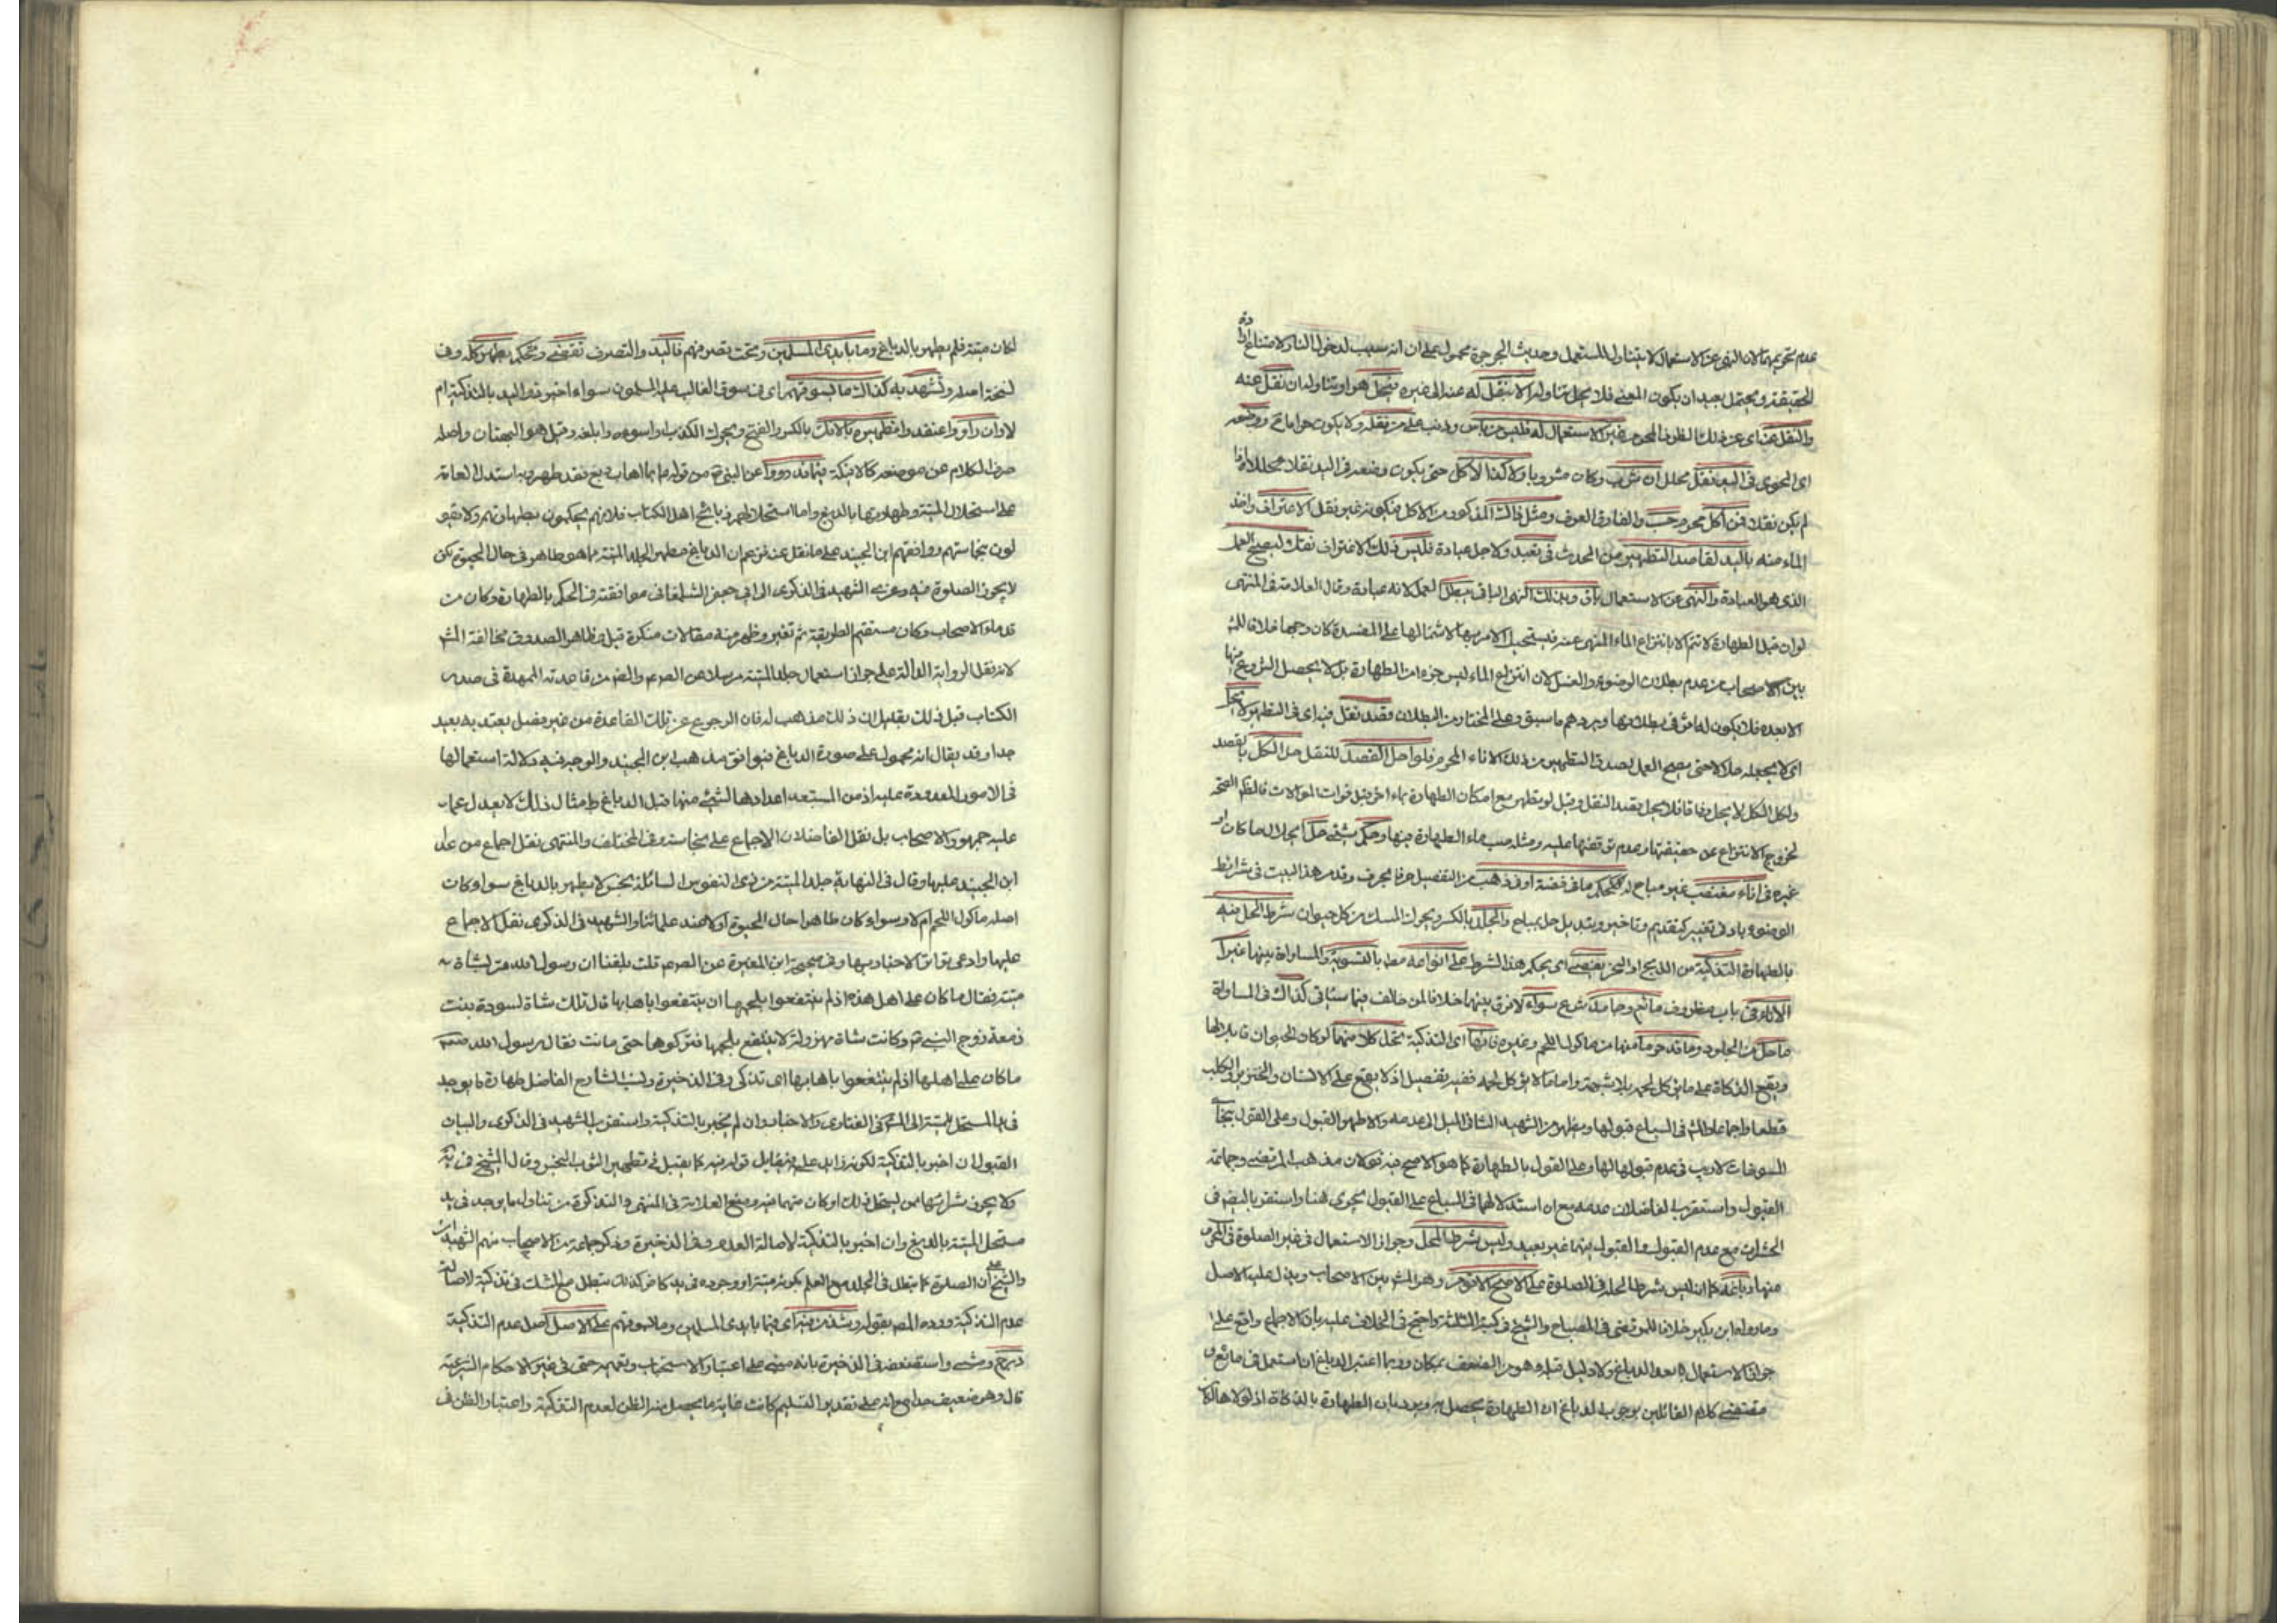 عدم تحريمها لان النهي عن الاستعمال لا يتناول المستعمل وحديث الجرجرة محمول على ان انه سبب لدخول النار لامتناع ارادة
الحقيقة ويحتمل بعيد ان يكون المعنى فلا يحل تناوله الا بنقل له عنه الى غيره فيحل هو او تناوله ان نقل عنه
والنقل عنه اى عن ذلك الظرف المحرم غير الاستعمال له فليس من باس وذنب على من نقله ولا يكون حراما ثم ووضعه
اى المحوى فى اليد نقل محلل ان شرب وكان مشروبا ولا كذا الاكل حتى يكون وضعه فى اليد نقلا محللا اذا
لم يكن نقلا فمن اكل محرم حسب والفارق العرف ومثل ذاك المذكور من الاكل فيكون من غير نقل الاغتراف واخذ
الماء منه باليد لقاصد التطهير من الحدث فى تعبد ولاجل عبادة فليس ذلك الاغتراف نقلا ليصح العمل
الذى هو العبادة والنهى عن الاستعمال باق وبذلك النهى الباقى يبطل العمل لانه عبادة وقال العلامة فى المنتهى
لو ان قيل الطهارة لا تتم الا بانتزاع الماء المنهى عنه فيستحيل الامر بها لاشتمالها على المفسدة كان وجها خلافا للمشهور
بين الاصحاب من عدم بطلان الوضوء والغسل لان انتزاع الماء ليس جزء من الطهارة بل لا يحصل الشروع منها
الا بعده فلا يكون له اثر فى بطلانها ويردهم ما سبق وعلى المختار من البطلان وقصد نقل فيه اى فى التطهير لا يحل
اى لا يجعله حلالا حتى يصح العمل بصدق التطهير من ذلك الاناء المحرم فلو احل القصد للنقل حل الكل بالقصد
ولكل الكل لا يحل وفاقا فلا يحل بقصد النقل وقيل لو تطهر مع امكان الطهارة بماء اخر قبل فوات الموالات فالظاهر الصحة
لخروج الانتزاع عن حقيقتها وعدم توقفها عليه ومثله صب ماء الطهارة فيها وحكم شىء حل اى حلال ما كان او
غيره فى اناء مغتصب غير مباح له كحكم ما فى فضة او فى ذهب من التفصيل حرفا بحرف وقد مر هذا البيت فى شرائط
الوضوء بادنى تغيير كتقديم وتاخير وتبديل حل بمباح والجلد بالكسر ويجوز المسك من كل حيوان شرط الحل فيه
بالطهارة التذكية من الذبح او النحر يقتضى اى يحكم هذا الشرط على انواعه معا بالتسوية والمساواة بينها غيرا
الاناء فى باب مظروف مائع وجامد شرع سواء لا فرق بينهما خلافا لمن خالف فيما سياتى كذاك فى المساواة
ما حل من الجلود وما قد حرما منها من ماكول اللحم وغيره فانها اى التذكية تحل كلا منهما لو كان الحيوان قابلا لها
ويقع الذكاة على ما يؤكل لحمه بلا شبهة واما ما لا يؤكل لحمه ففيه تفصيل اذ لا يقع على الانسان والخنزير والكلب
قطعا واجماعا والمشهور فى السباع قبولها ويظهر من الشهيد الثانى الميل الى عدمه والاظهر القبول وعلى القول بنجاسة
المسوخات لا ريب فى عدم قبولها لها وعلى القول بالطهارة كما هو الاصح فيه قولان مذهب المرتضى وجماعة
القبول واستقرب الفاضلان عدمه مع ان استدلالهما فى السباع على القبول يجرى هنا واستقر بالبعض فى
الحشرات مع عدم القبول والقبول فيها غير بعيد وليس شرط الحل وجواز الاستعمال فى غير الصلوة فى المحرم
منها دباغه كما انه ليس شرط الحلة فى الصلوة على الاصح الاقوم وهو المشهور بين الاصحاب ويدل عليه الاصل
وما رواه ابن بكير خلافا للمرتضى فى المصباح والشيخ فى كتبه الثلثة واحتج فى الخلاف عليه بان الاجماع واقع على
جواز الاستعمال بعد الدباغ ولا دليل قبله وهو من الضعف بمكان وربما اعتبر الدباغ ان استعمل فى مائع و
مقتضى كلام القائلين بوجوب الدباغ ان الطهارة يحصل به ويرده ان الطهارة بالذكاة اذ لولاها لكا
لكان ميتة فلم يطهر بالدباغ وما بايدى المسلمين وتحت تصرفهم فاليد والتصرف تقتضى وتحكم بطهر كله وفى
نسخة اصله وتشهد به كذاك ما بسوقهم اى فى سوق الغالب عليه المسلمون سواء اخبر ذو اليد بالتذكية ام
لا وان راو واعتقد وا تطهيره بالافك بالكسر والفتح ويحرك الكذب او اسوءه وابلغه وقيل هو البهتان واصله
صرف الكلام عن موضعه كالافيكة فيما قد رووا عن النبى ص من قوله ايما اهاب دبغ فقد طهر وبه استدل العامة
على استحلال الميتة وطهارتها بالدبغ واما استحلالهم ذبائح اهل الكتاب فلانهم يحكمون بطهارتهم ولا يقو
لون بنجاستهم ووافقهم ابن الجنيد على ما نقل عنه من ان الدباغ مطهر لجلد الميتة مما هو طاهر فى حال الحيوة لكن
لا يجوز الصلوة فيه وعزى الشهيد فى الذكرى الى ابى جعفر الشلمغانى موافقته فى الحكم بالطهارة وكان من
قدماء الاصحاب وكان مستقيم الطريقة ثم تغير وظهر منه مقالات منكرة قيل وظاهر الصدوق مخالفة المشهور
لانه نقل الرواية الدالة على جواز استعمال جلد الميتة مرسلا عن الصادق ع والفهم من قاعدته الممهدة فى صدر
الكتاب قبل ذلك بقليل ان ذلك مذهب له فان الرجوع عن تلك القاعدة من غير فصل يعتد به بعيد
جدا وقد يقال انه محمول على صورة الدباغ فيوافق مذهب ابن الجنيد والوجه فيه دلالة استعمالها
فى الامور المعدودة عليه اذ من المستبعد اعدادها لشىء منها قبل الدباغ وامثال ذلك لا يعدل عما
عليه جمهور الاصحاب بل نقل الفاضلان الاجماع على نجاسته وفى المختلف والمنتهى نقل اجماع من عدا
ابن الجنيد عليها وقال فى النهاية جلد الميتة من ذى النفوس السائلة نجس لا يطهر بالدباغ سواء كان
اصله ماكول اللحم ام لا وسواء كان طاهرا حال الحيوة او لا عند علمائنا والشهيد فى الذكرى نقل الاجماع
عليها وادعى تواتر الاخبار بها وفى صحيحة ابن المغيرة عن الصادق ع قلت بلغنا ان رسول الله مر بشاة
ميتة فقال ما كان على اهل هذه اذ لم ينتفعوا بلحمها ان ينتفعوا باهابها قال تلك شاة لسودة بنت
زمعة زوج النبى ص وكانت شاة مهزولة لا ينتفع بلحمها فتركوها حتى ماتت فقال رسول الله ص
ما كان على اهلها اذ لم ينتفعوا بلحمها ان ينتفعوا باهابها اى تذكى وفى الذخيرة ونسب الشارح الفاضل طهارة ما يوجد
فى يد المستحل للميتة الى المشهور فى الفتاوى والاخبار وان لم يخبر بالتذكية واستقرب الشهيد فى الذكرى والبيان
القبول ان اخبر بالتذكية لكونه ذا يد عليه فيقبل قوله فيه كما يقبل فى تطهير الثوب النجس وقال الشيخ فى يه
ولا يجوز شرائها ممن يستحل ذلك او كان متهما فيه ومنع العلامة فى المنتهى والتذكرة من تناول ما يوجد فى يد
مستحل الميتة بالدبغ وان اخبر بالتذكية لاصالة العدم وفى الذخيرة وذكر جماعة من الاصحاب منهم الشهيدان
والشيخ على ان الصلوة كما تبطل فى الجلد مع العلم بكونه ميتة او وجوده فى يد كافر كذلك تبطل مع الشك فى تذكيته لاصالة
عدم التذكية ورده المصنف بقوله وشذ من اى فيما بايدى المسلمين وما بسوقهم على الاصل اصل عدم التذكية
درج ومشى واستضعفه فى الذخيرة بانه مبنى على اعتبار الاستصحاب وتعميمه حتى فى غير الاحكام الشرعية
قال وهو ضعيف جدا مع انه على تقدير التسليم كانت غاية ما يحصل منه الظن لعدم التذكية واعتبار الظن فى